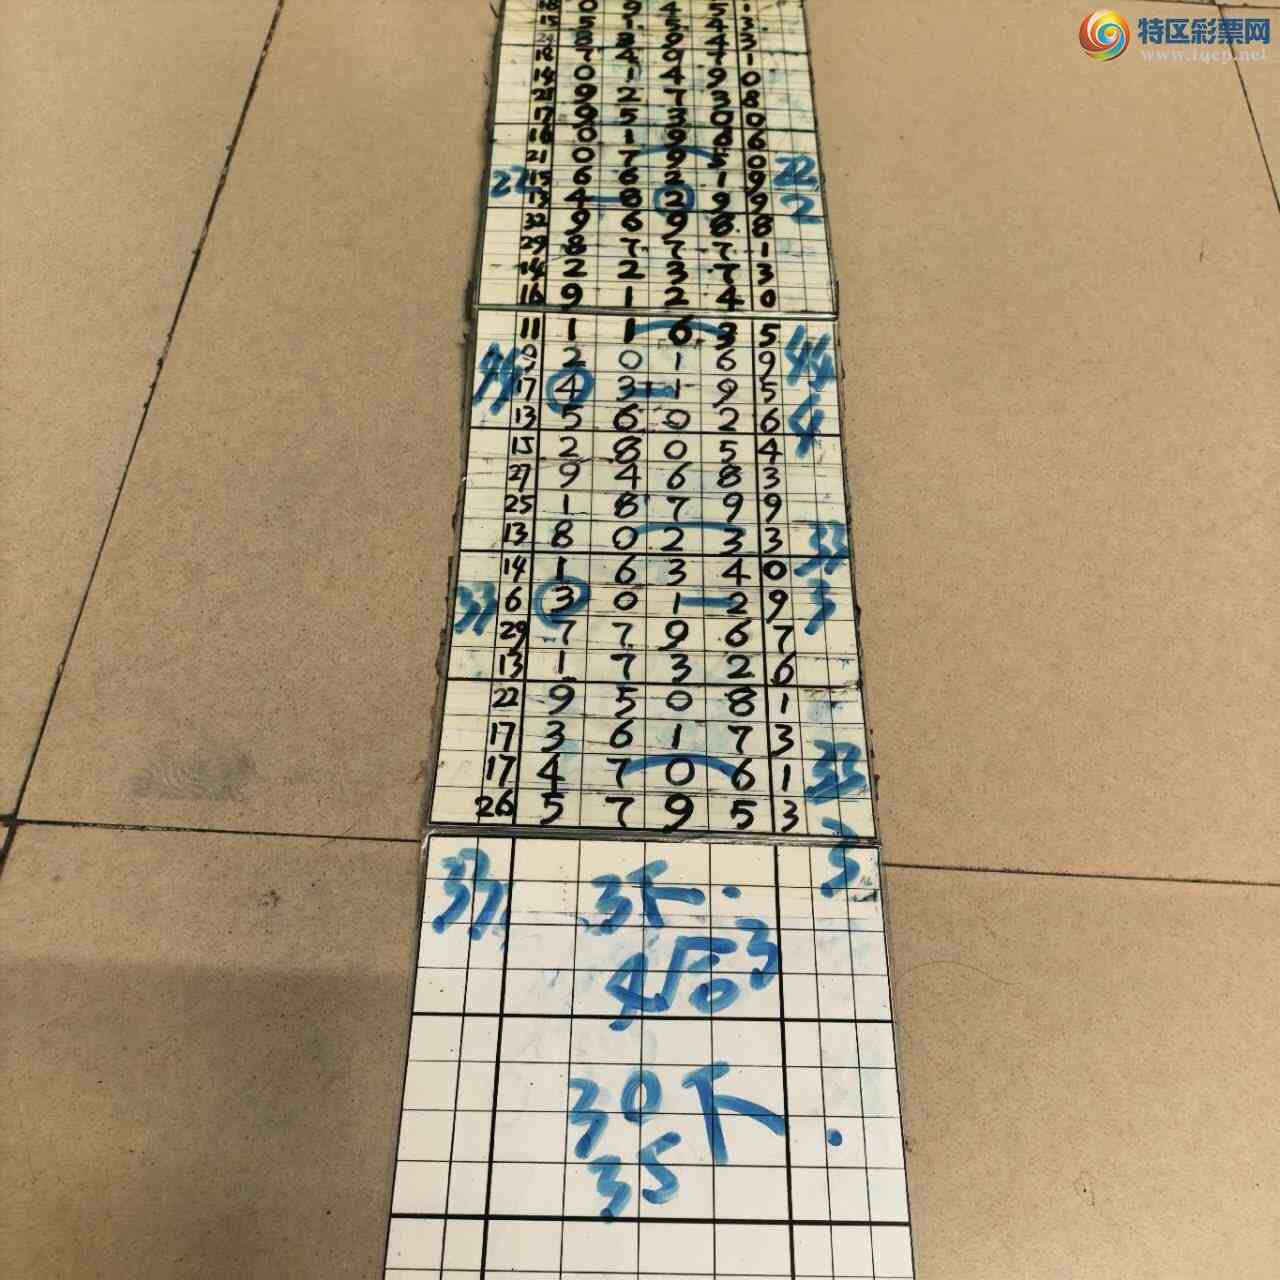 特区彩票网
www.tqcp.net
15 5 1 5 4 3
18 7 4 9 7 1
14 0 1 4 9 0
28 9 2 7 3 8
17 9 5 3 0 0
16 0 1 9 6 6
21 0 7 9 5 0
22 15 6 6 2 1 9 22
13 4 8 2 9 9 2
32 9 6 9 8 8
29 8 7 7 7 1
14 2 2 3 7 3
16 9 1 2 4 0
11 1 1 6 3 5
44 9 2 0 1 6 9 44
17 4 3 1 9 5
13 5 6 0 2 6 4
15 2 8 0 5 4
27 9 4 6 8 3
25 1 8 7 9 9
13 8 0 2 3 3 33
14 1 6 3 4 0
33 6 3 0 1 2 9 3
29 7 7 9 6 7
13 1 7 3 2 6
22 9 5 0 8 1
17 3 6 1 7 3
17 4 7 0 6 1 33
26 5 7 9 5 3
33 3下. 3
4后3
30下.
35